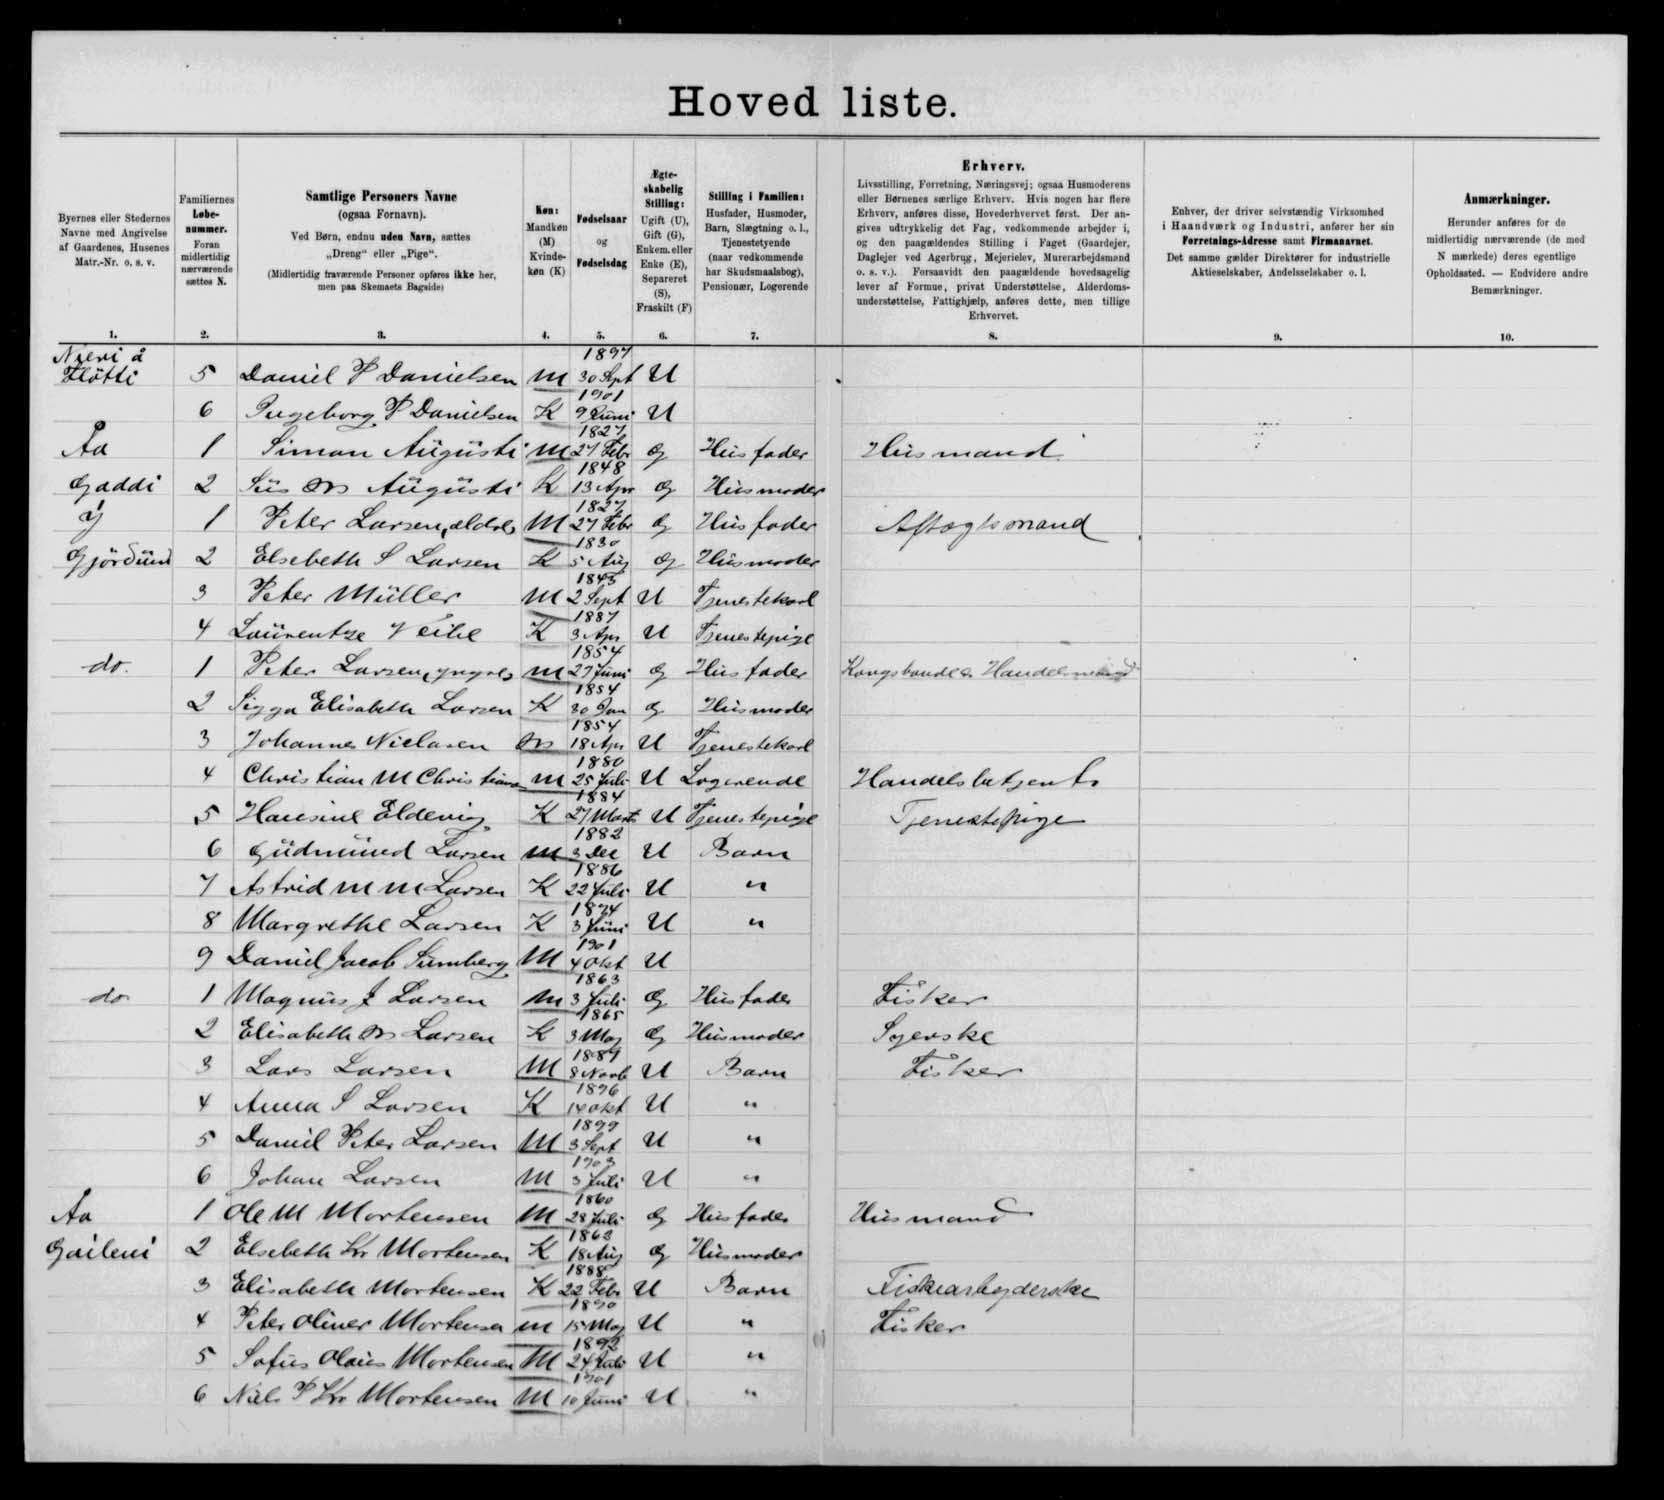 Hoved liste.
Byernes eller Stedernes Navne med Angivelse af Gaardenes, Husenes Matr.-Nr. o. s. v.
Familiernes Løbe-nummer. Foran midlertidig nærværende sættes N.
Samtlige Personers Navne (ogsaa Fornavn). Ved Børn, endnu uden Navn, sættes „Dreng“ eller „Pige“. (Midlertidig fraværende Personer opføres ikke her, men paa Skemaets Bagside)
Køn: Mandkøn (M) Kvinde-køn (K)
Fødselsaar og Fødselsdag
Ægte-skabelig Stilling: Ugift (U), Gift (G), Enkem. eller Enke (E), Separeret (S), Fraskilt (F)
Stilling i Familien: Husfader, Husmoder, Barn, Slægtning o. l., Tjenestetyende (naar vedkommende har Skudsmaalsbog), Pensionær, Logerende
Erhverv. Livsstilling, Forretning, Næringsvej; ogsaa Husmoderens eller Børnenes særlige Erhverv. Hvis nogen har flere Erhverv, anføres disse, Hovederhvervet først. Der angives udtrykkelig det Fag, vedkommende arbejder i, og den paagældendes Stilling i Faget (Gaardejer, Daglejer ved Agerbrug, Mejerielev, Murerarbejdsmand o. s. v.). Forsaavidt den paagældende hovedsagelig lever af Formue, privat Understøttelse, Alderdoms-understøttelse, Fattighjælp, anføres dette, men tillige Erhvervet.
Enhver, der driver selvstændig Virksomhed i Haandværk og Industri, anfører her sin Forretnings-Adresse samt Firmanavnet. Det samme gælder Direktører for industrielle Aktieselskaber, Andelsselskaber o. l.
Anmærkninger. Herunder anføres for de midlertidig nærværende (de med N mærkede) deres egentlige Opholdssted. — Endvidere andre Bemærkninger.
1. 2. 3. 4. 5. 6. 7. 8. 9. 10.
5 Daniel P Danielsen M 1897 30 Sept U
6 Ingeborg P Danielsen K 1901 9 Juni U
Aa 1 Simon Augusti M 1827 27 Febr G Husfader Husmand
Gaddi 2 Sus M Augusti K 1848 13 Apr G Husmoder
1 Peter Larsen, ældre M 1827 27 Febr G Husfader Aftægtsmand
2 Elsebeth S Larsen K 1830 5 Aug G Husmoder
3 Peter Müller M 2 Sept U Tjenestekarl
4 Laurentze Veihe K 1887 3 Apr U Tjenestepige
do. 1 Peter Larsen, yngre M 1854 27 Juni G Husfader Kongsbonde & Handelsmand
2 Sigga Elisabeth Larsen K 1854 30 Jan G Husmoder
3 Johannes Niclasen M 1854 18 Apr U Tjenestekarl
4 Christian M Christians M 1880 25 Juli U Logerende Handelsbetjent
5 Hansine Eldevig K 1884 27 Marts U Tjenestepige Tjenestepige
6 Gudmund Larsen M 1882 3 Dec U Barn
7 Astrid M M Larsen K 1886 22 Juli U "
8 Margrethe Larsen K 3 Juni U "
9 Daniel Jacob Sumberg M 1901 4 Okt U
do 1 Magnus J Larsen M 1863 3 Juli G Husfader Fisker
2 Elisabeth M Larsen K 1865 3 Maj G Husmoder Syerske
3 Lars Larsen M 8 Novb U Barn Fisker
4 Anna S Larsen K 1896 14 Okt U "
5 Daniel Peter Larsen M 1899 3 Sept U "
6 Johan Larsen M 1903 3 Juli U "
Aa 1 Ole M Mortensen M 1860 28 Juli G Husfader Husmand
2 Elsebeth Kr Mortensen K 18 Aug G Husmoder
3 Elisabeth Mortensen K 1888 22 Febr U Barn Fiskearbejderske
4 Peter Oliver Mortensen M 1890 15 Maj U " Fisker
5 Sofus Olaus Mortensen M 1892 24 Juli U "
6 Niels P Kr Mortensen M 1901 10 Juni U "